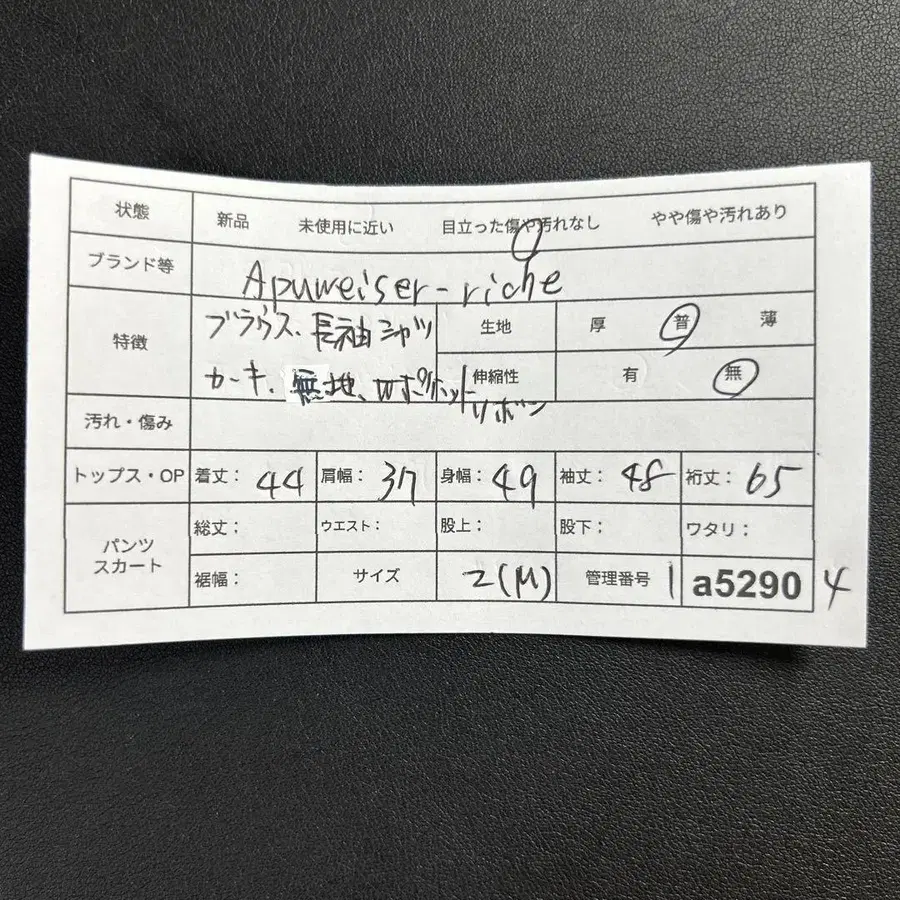 状態 新品 未使用に近い 目立った傷や汚れなし やや傷や汚れあり
ブランド等 Apuweiser-riche
特徴 ブラウス、長袖シャツ 生地 厚 普 薄
カーキ、無地、 伸縮性 有 無
リボン
汚れ・傷み
トップス・OP 着丈: 44 肩幅: 37 身幅: 49 袖丈: 48 裄丈: 65
パンツ スカート 総丈: ウエスト: 股上: 股下: ワタリ:
裾幅: サイズ 2(M) 管理番号 1 a5290 4